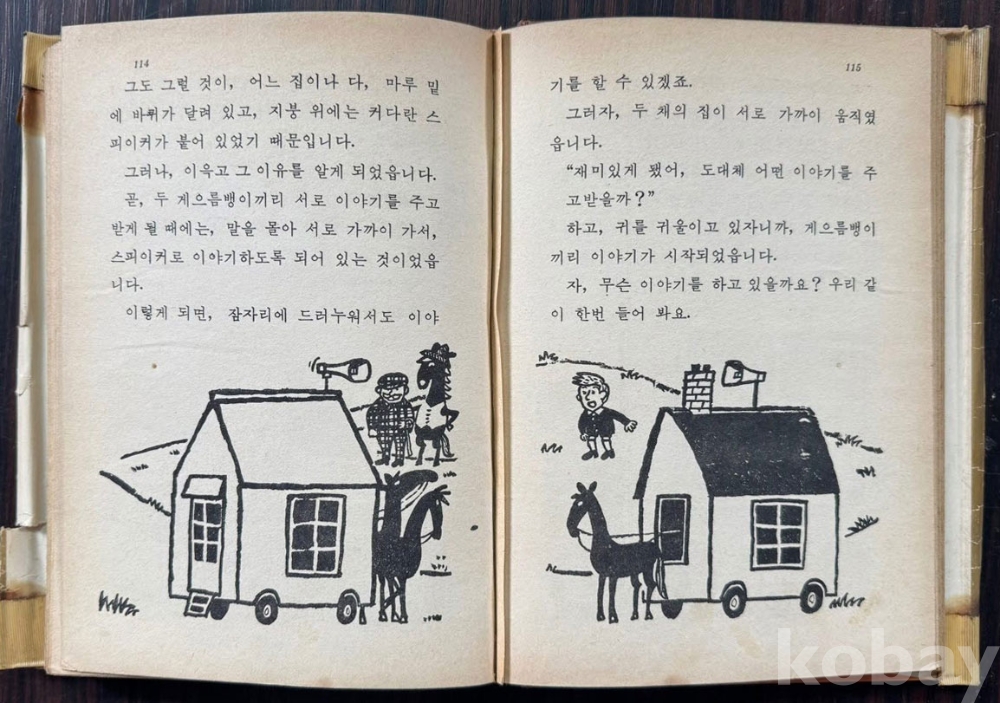 114
그도 그럴 것이, 어느 집이나 다, 마루 밑
에 바퀴가 달려 있고, 지붕 위에는 커다란 스
피이커가 붙어 있었기 때문입니다.
그러나, 이윽고 그 이유를 알게 되었읍니다.
곧, 두 게으름뱅이끼리 서로 이야기를 주고
받게 될 때에는, 말을 몰아 서로 가까이 가서,
스피이커로 이야기하도록 되어 있는 것이었읍
니다.
이렇게 되면, 잠자리에 드러누워서도 이야
115
기를 할 수 있겠죠.
그러자, 두 채의 집이 서로 가까이 움직였
읍니다.
“재미있게 됐어, 도대체 어떤 이야기를 주
고받을까?”
하고, 귀를 귀울이고 있자니까, 게으름뱅이
끼리 이야기가 시작되었읍니다.
자, 무슨 이야기를 하고 있을까요? 우리 같
이 한번 들어 봐요.
kobay